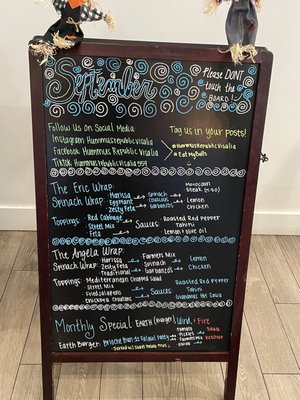 September
Please DONT
touch the
BOARD :)
Follow Us on Social Media
Instagram HummusRepublicVisalia
Facebook Hummus Republic Visalia
Tiktok HummusRepublicVisalia559
Tag us in your posts!
#HummusRepublicVisalia
#EatMyBalls
The Eric Wrap:
Spinach Wrap:
Harissa
Eggplant
Zesty Feta
Spinach
Couscous
Garbanzos
Moroccan
Steak (+.50)
Lemon
Chicken
Toppings:
Red Cabbage
Street Mix
Feta
Sauces:
Roasted Red Pepper
Tahini
Lemon + olive oil
The Angela Wrap:
Spinach Wrap:
Harissa
Zesty Feta
Traditional
Farmers Mix
Spinach
Garbanzos
Lemon
Chicken
Toppings:
Mediterranean Chopped Salad
Street Mix
Fried Jalapenos
Chickpea Croutons
Sauces:
Roasted Red Pepper
Tahini
Grandmas Hot Sauce
Monthly Special: Earth (Burger), Wind, + Fire
Earth Burger:
Brioche Bun
Falafel Patty
Tomato
Pickles
Farmers Mix
Onion
Sauce
Ketchup